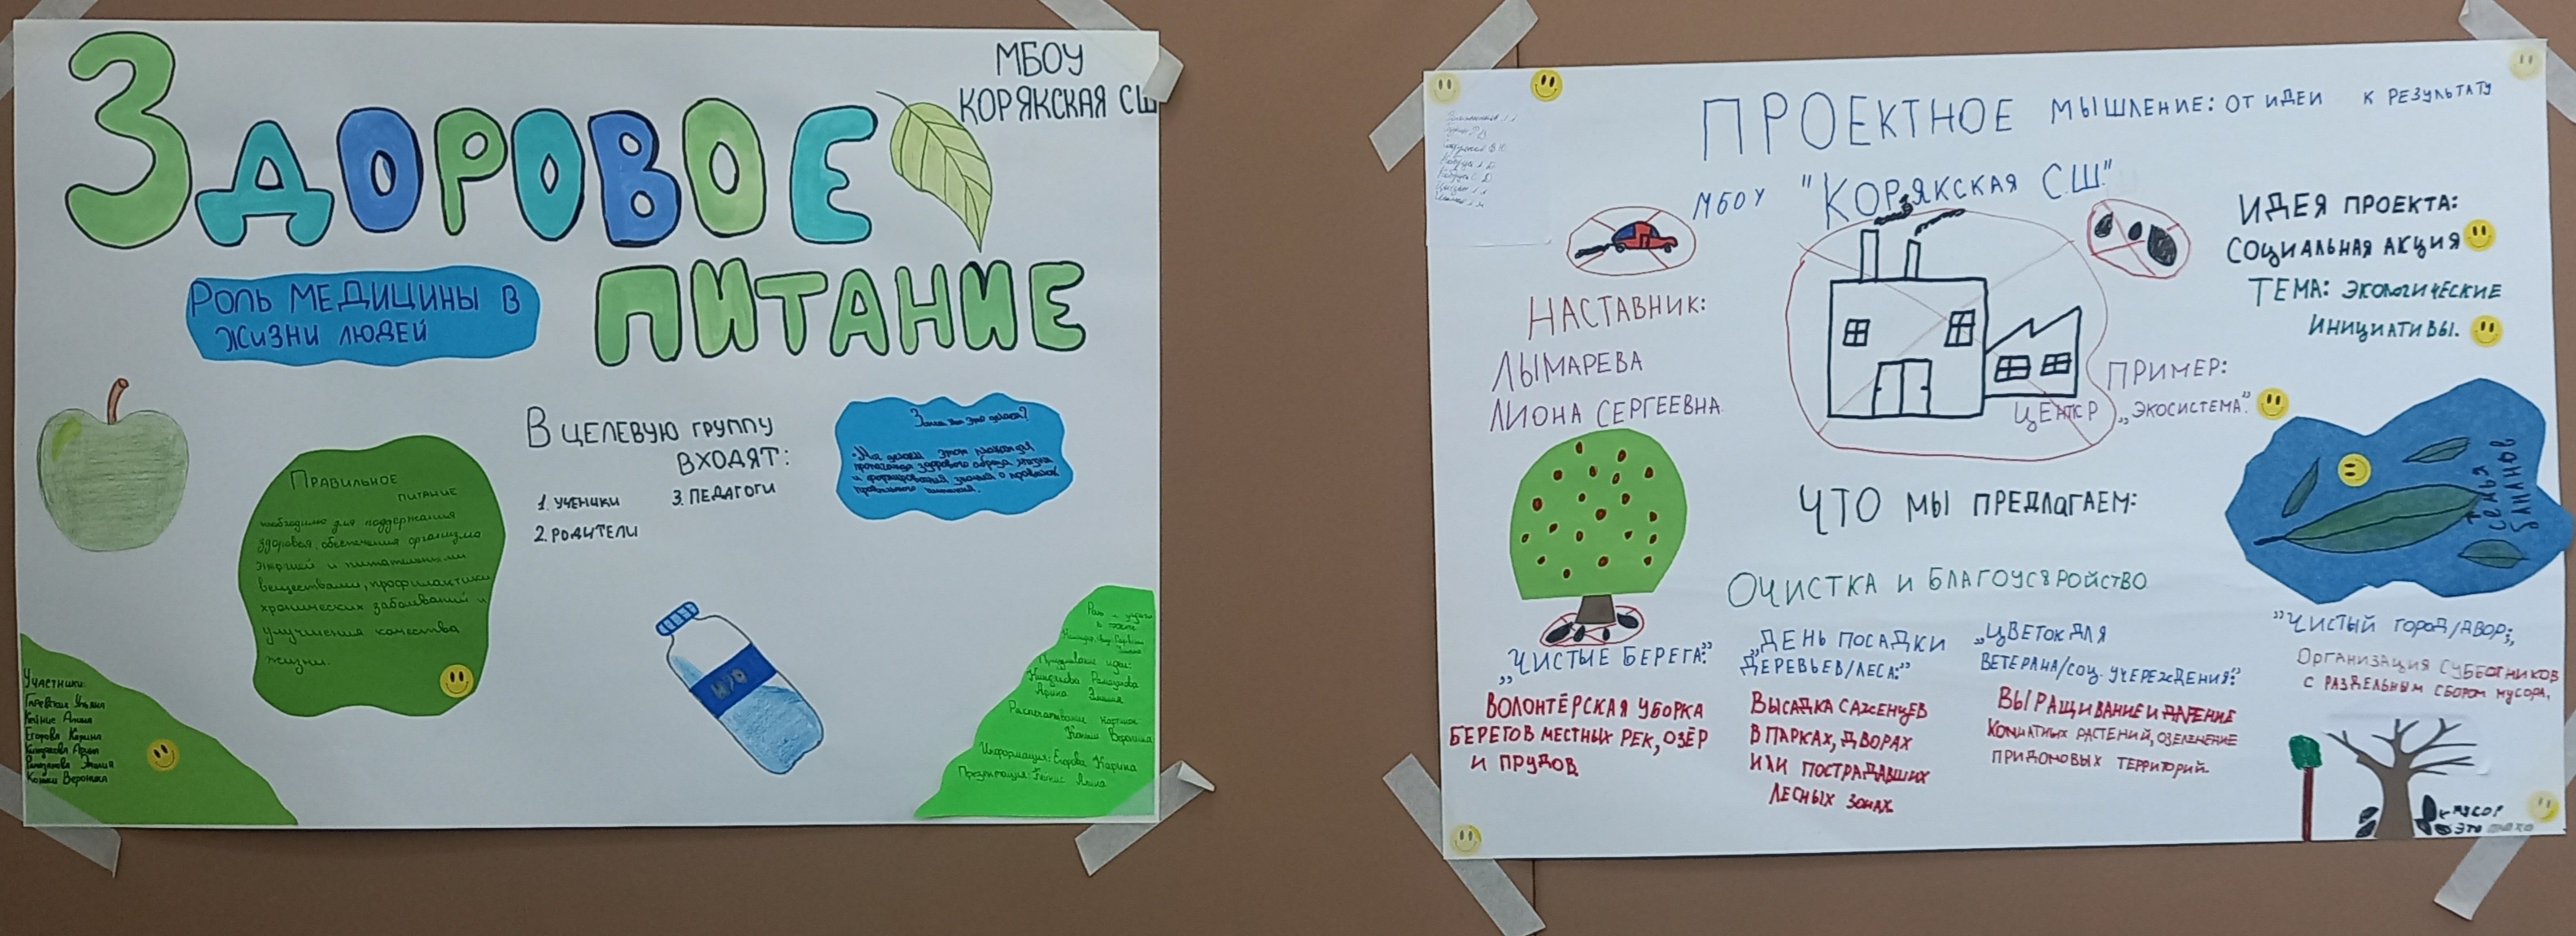 МБОУ
КОРЯКСКАЯ СШ
ЗДОРОВОЕ
ПИТАНИЕ
РОЛЬ МЕДИЦИНЫ В
ЖИЗНИ ЛЮДЕЙ
В ЦЕЛЕВУЮ ГРУППУ
ВХОДЯТ:
1. УЧЕНИКИ
2. РОДИТЕЛИ
3. ПЕДАГОГИ
это делаем?
Мы делаем этот плакат для
пропаганда здорового образа жизни
и формирования знаний о правилах
правильного питания.
ПРАВИЛЬНОЕ
ПИТАНИЕ
необходимо для поддержания
здоровья, обеспечения организма
энергией и питательными
веществами, профилактики
хронических заболеваний и
улучшения качества
жизни.
H2O
УЧАСТНИКИ:
Ульяна
Алина
Егорова Карина
Арина
Рамазанова Эмилия
Вероника
Придумывание идеи:
Рамазанова
Арина Эмилия
Распечатывание картинок
Вероника
Информация: Егорова Карина
Презентация: Алина
ПРОЕКТНОЕ МЫШЛЕНИЕ: ОТ ИДЕИ К РЕЗУЛЬТАТУ
МБОУ "КОРЯКСКАЯ С.Ш."
ИДЕЯ ПРОЕКТА:
СОЦИАЛЬНАЯ АКЦИЯ
ТЕМА: ЭКОЛОГИЧЕСКИЕ
ИНИЦИАТИВЫ.
НАСТАВНИК:
ЛЫМАРЕВА
ЛИОНА СЕРГЕЕВНА
ПРИМЕР:
ЦЕНТР „ЭКОСИСТЕМА."
СЕМЬЯ
БАНАНОВ
ЧТО МЫ ПРЕДЛАГАЕМ:
ОЧИСТКА И БЛАГОУСТРОЙСТВО
„ЧИСТЫЕ БЕРЕГА:"
ВОЛОНТЁРСКАЯ УБОРКА
БЕРЕГОВ МЕСТНЫХ РЕК, ОЗЁР
И ПРУДОВ
„ДЕНЬ ПОСАДКИ
ДЕРЕВЬЕВ/ЛЕСА:"
ВЫСАДКА САЖЕНЦЕВ
В ПАРКАХ, ДВОРАХ
ИЛИ ПОСТРАДАВШИХ
ЛЕСНЫХ ЗОНАХ
„ЦВЕТОК ДЛЯ
ВЕТЕРАНА/СОЦ. УЧЕРЕЖДЕНИЯ:"
ВЫРАЩИВАНИЕ И ДАРЕНИЕ
КОМНАТНЫХ РАСТЕНИЙ, ОЗЕЛЕНЕНИЕ
ПРИДОМОВЫХ ТЕРРИТОРИЙ.
"ЧИСТЫЙ ГОРОД/ДВОР:„
ОРГАНИЗАЦИЯ СУББОТНИКОВ
С РАЗДЕЛЬНЫМ СБОРОМ МУСОРА.
МУСОР
ЭТО ПЛОХО